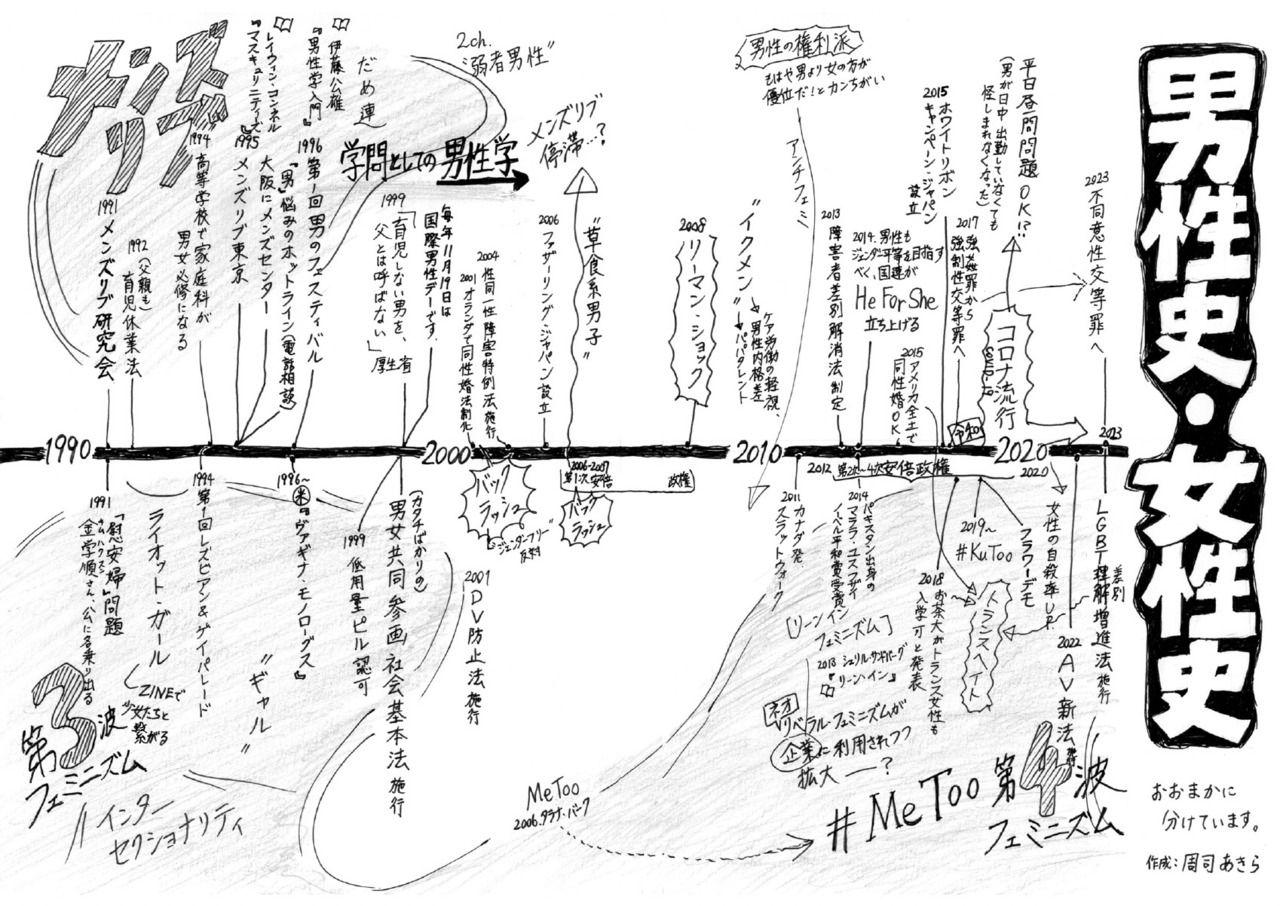 男性史・女性史
おおまかに
分けています。
作成：周司あきら
メンズ
リブ
『マスキュリニティーズ』
レイウィン・コンネル
『男性学入門』
伊藤公雄
だめ連
2ch.
"弱者男性"
学問としての男性学
メンズリブ
停滞…？
男性の権利派
もはや男より女の方が
優位だ！とカンちがい
アンチフェミ
1991 メンズリブ研究会
1992 (父親も)
育児休業法
1994 高等学校で家庭科が
男女必修になる
1995
メンズリブ東京
大阪にメンズセンター
『男』悩みのホットライン(電話相談)
1996 第1回 男のフェスティバル
1999
「育児しない男を、
父とは呼ばない」
厚生省
毎年11月19日は
国際男性デーです。
2001 オランダで同性婚法制化
2004 性同一性障害特例法施行
2006 ファザーリング・ジャパン設立
"草食系男子"
2008
リーマン・ショック
"イクメン"
ケア労働の軽視、
男性内格差
パパタレント
2013 障害者差別解消法制定
2014. 男性も
ジェンダー平等を目指す
べく、国連が
He For She
立ち上げる
2015
アメリカ全土で
同性婚OK
2015
ホワイトリボン
キャンペーン・ジャパン
設立
2017 強姦罪から
強制性交等罪へ
平日昼間問題OK!?
(男が日中出勤していなくても
怪しまれなくなった)
コロナ流行
COVID-19
2023 不同意性交等罪へ
令和
1990
2000
2010
2020
2023
2006-2007
第1次 安倍 政権
2012 第2次〜4次安倍政権
2020
1991
「慰安婦」問題
キムハクスン
金学順さん、公に名乗り出る
ライオット・ガール
ZINEで
少女たちと
繋がる
1994 第1回レズビアン&ゲイパレード
"ギャル"
1996〜
米『ヴァギナ・モノローグス』
1999 低用量ピル認可
(カタチばかりの)
男女共同参画社会基本法 施行
2001 DV防止法施行
バック
ラッシュ
ジェンダーフリー
反対
バック
ラッシュ
第3波
フェミニズム
インター
セクショナリティ
MeToo
2006.タラナ・バーク
2011 カナダ発
スラットウォーク
2014 パキスタン出身の
マララ・ユスフザイ
ノーベル平和賞受賞
[リーンイン
フェミニズム]
2013 シェリル・サンドバーグ
『リーン・イン』
ネオ
リベラル・フェミニズムが
企業に利用されつつ
拡大―？
2018 お茶大がトランス女性も
入学可と発表
2019〜
#KuToo
フラワーデモ
トランスヘイト
女性の自殺率UP.
2022 AV新法施行
差別
LGBT理解増進法施行
#MeToo
第4波
フェミニズム